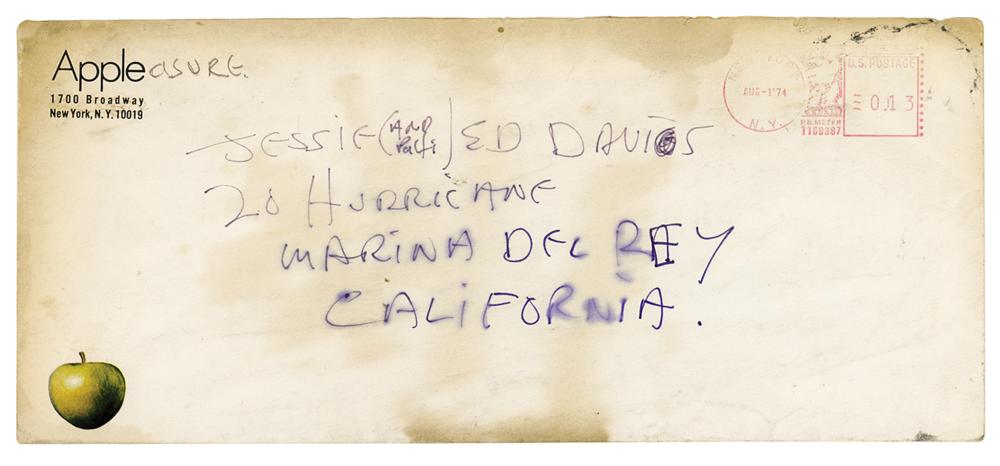 Appleasure.
1700 Broadway
New York, N.Y. 10019
NEW YORK
AUG-1'74
N.Y.
U.S. POSTAGE
0.13
P.B. METER
1169387
JESSIE (AND Patti) ED DAVIES
20 HURRICANE
MARINA DEL REY
CALIFORNIA.